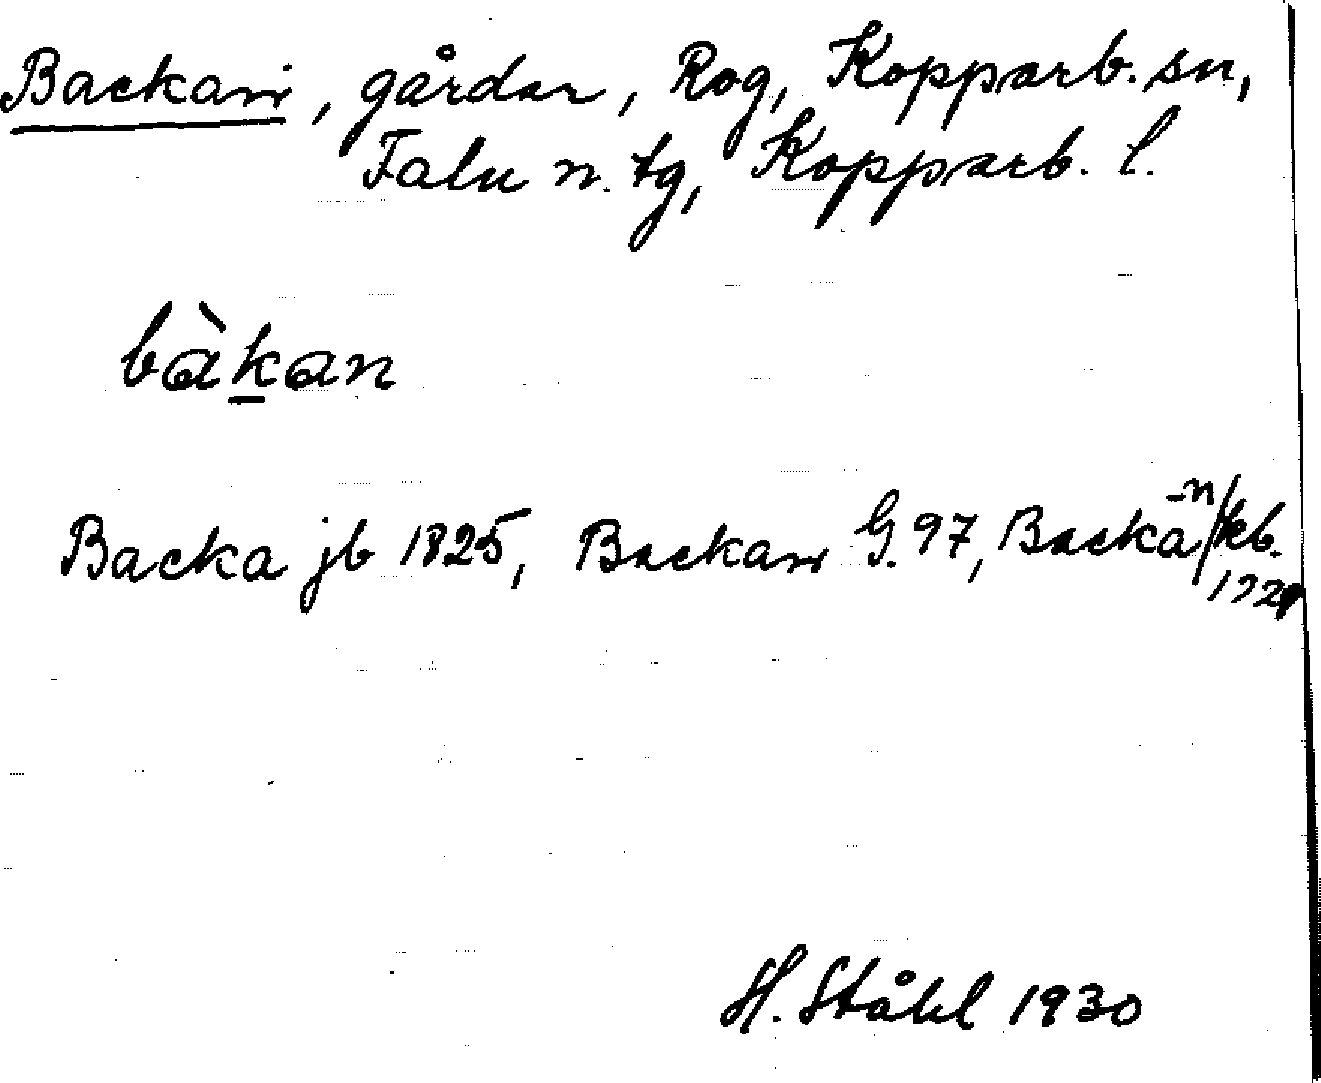 Backarna, gårdar, Rog, Kopparb. sn,
Falu n. tg, Kopparb. l.
bàkan
Backa jb 1825, Backarna G. 97, Backa -n/kb.
H. Ståhl 1930